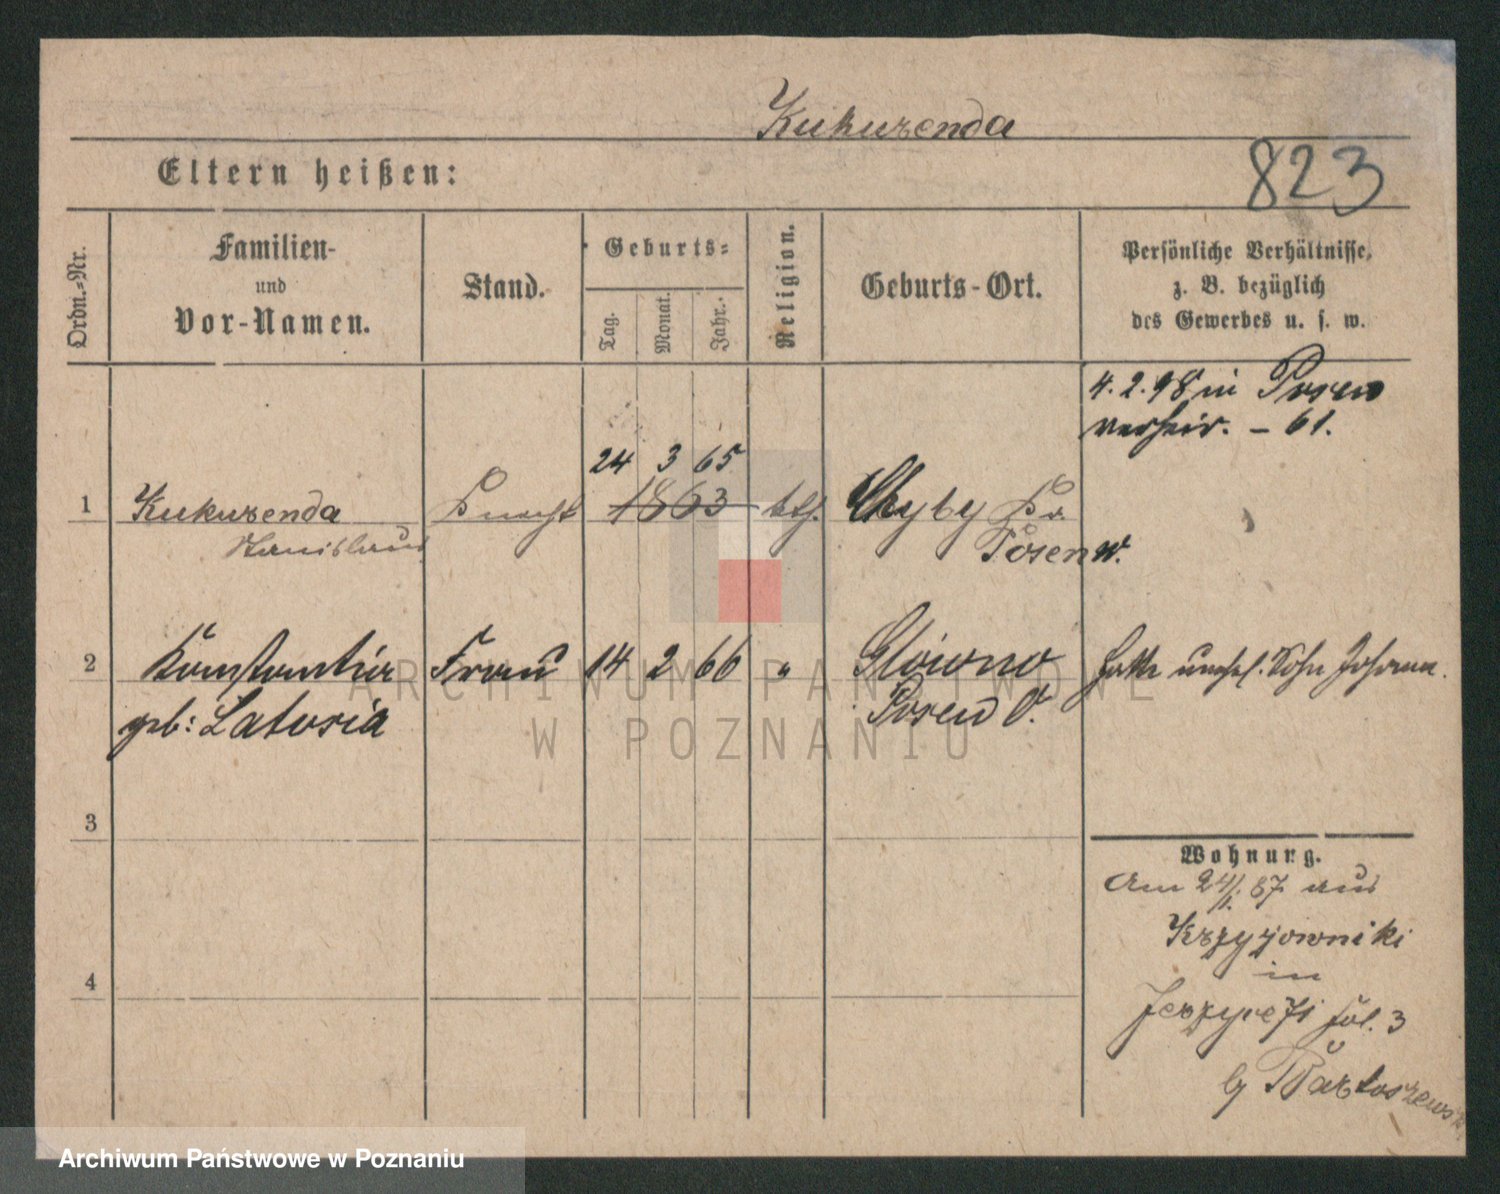 Kukurenda
823
Eltern heißen:
Ordn.-Nr.
Familien-
und
Vor-Namen.
Stand.
Geburts-
Tag.
Monat.
Jahr.
Religion.
Geburts-Ort.
Persönliche Verhältnisse,
z. B. bezüglich
des Gewerbes u. s. w.
4. 2. 98 in Posen
verheir. – 61.
24 3 65
1 Kukurenda Knecht 1863 kth. Chyby Kr.
Stanislaus Posen W.
2 Konstantia Frau 14 2 66 " Glowno hatte unehel. Sohn Johann.
geb: Latosia Posen O.
3
4
Wohnung.
Am 24/1. 87 aus
Krzyzowniki
in
Jerzyce 71 fol. 3
by
ARCHIWUM PAŃSTWOWE
W POZNANIU
Archiwum Państwowe w Poznaniu